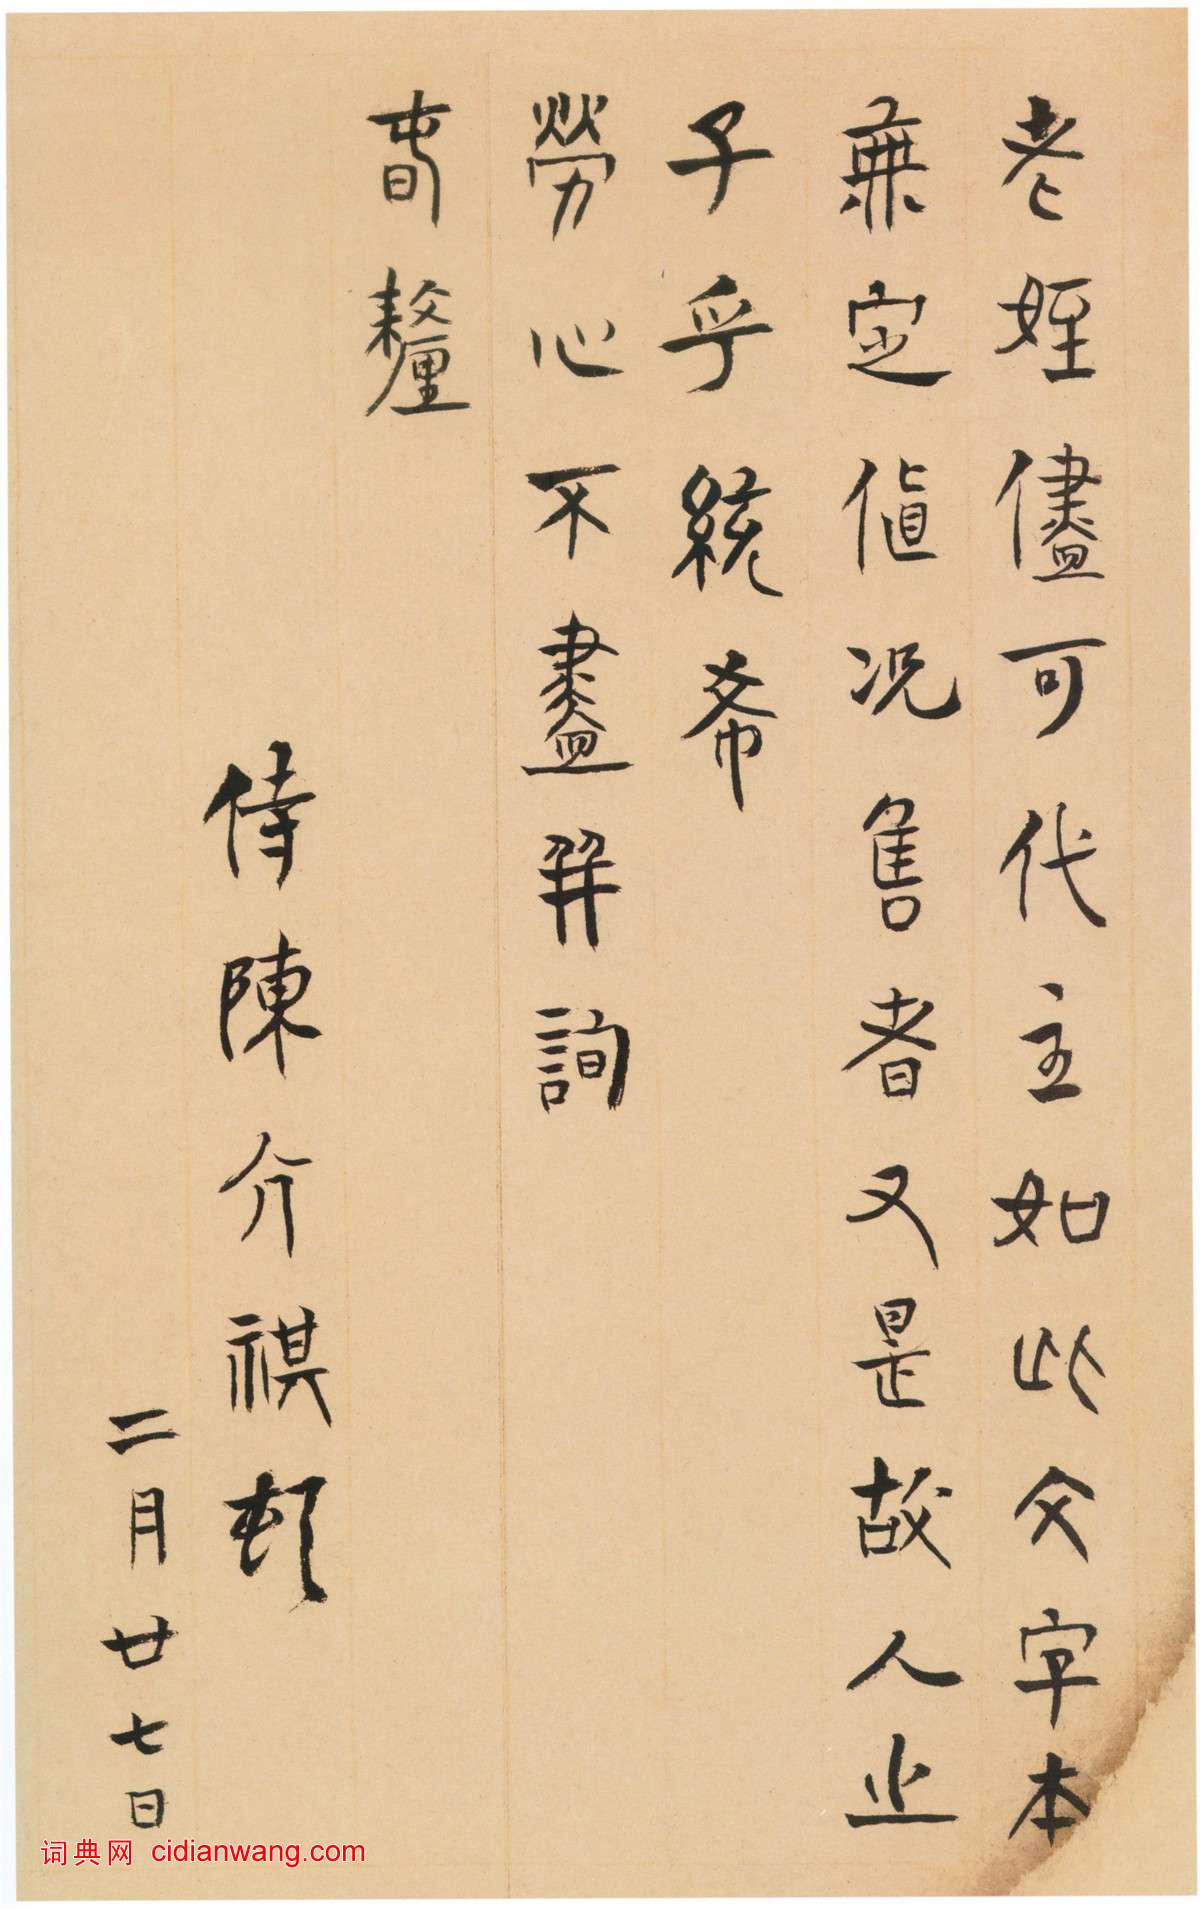 老姪儘可代主如此文字本
無定值況售者又是故人之
子乎統希
勞心不盡并詢
春釐
侍陳介祺頓
二月廿七日
词典网 cidianwang.com